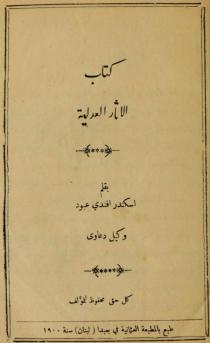 كتاب
الاثار العدلية
بقلم
اسكندر افندي عبود
وكيل دعاوى
كل حق محفوظ للمؤلف
طبع بالمطبعة العثمانية في بعبدا (لبنان) سنة ١٩٠٠